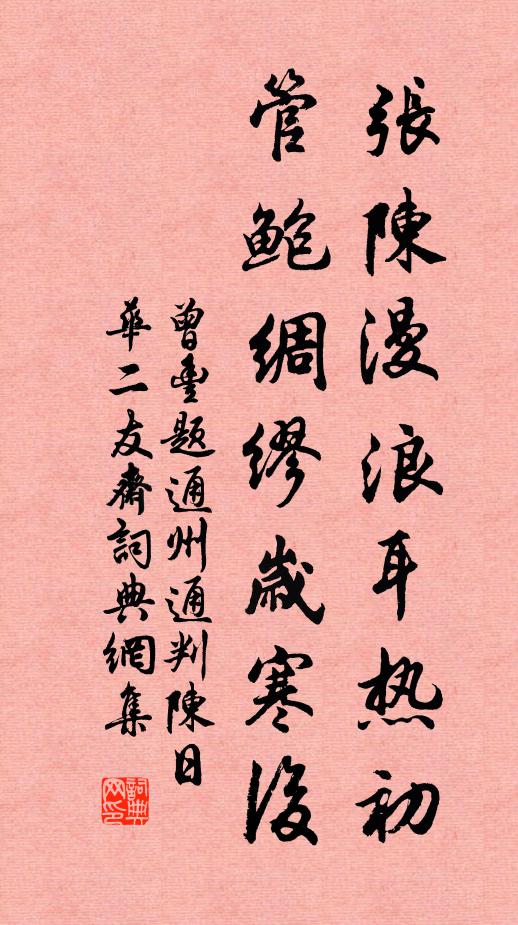 張陳漫浪耳热初
管鮑綢繆歲寒後
曾豊題通州通判陳日
華二友齋詞典網集
詞典
网印